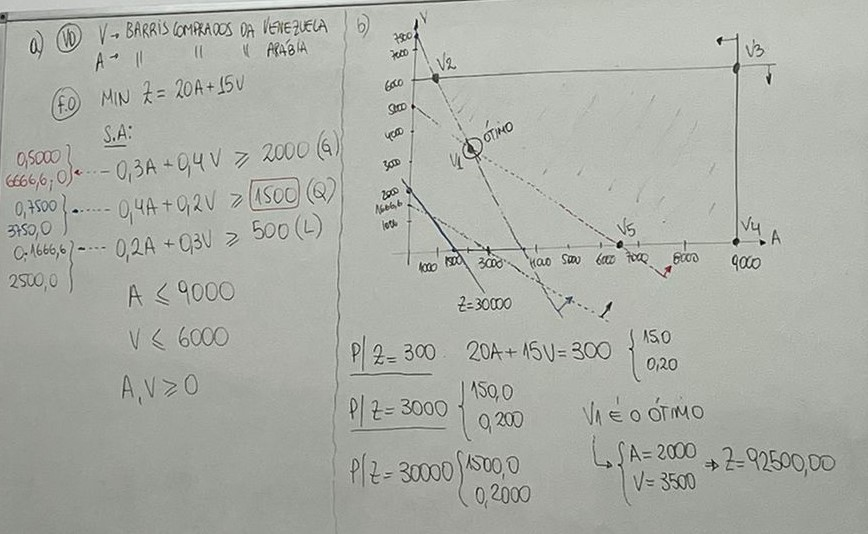 a) VD V → BARRIS COMPRADOS DA VENEZUELA
A → " " " ARÁBIA
F.O MIN Z = 20A + 15V
S.A:
0,5000
6666,6; 0
0,3A + 0,4V ≥ 2000 (G)
0,7500
3750,0
0,4A + 0,2V ≥ 1500 (Q)
0.1666,6
2500,0
0,2A + 0,3V ≥ 500 (L)
A ≤ 9000
V ≤ 6000
A, V ≥ 0
b)
V
7500
7000
6000
5000
4000
3000
2000
1666,6
1000
V2
V3
ÓTIMO
V1
V5
V4
A
1000 1500 3000 4000 5000 6000 7000 8000 9000
Z=30000
P/ Z = 300 20A + 15V = 300 { 15,0
0,20
P/ Z = 3000 { 150,0
0,200
P/ Z = 30000 { 1500,0
0,2000
V1 É O ÓTIMO
↳ { A = 2000
V = 3500
⇒ Z = 92500,00